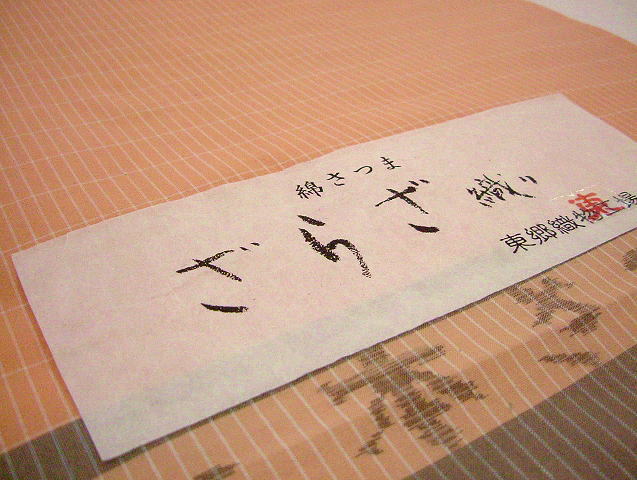 綿さつま
ざらざ織り
東郷織物工場